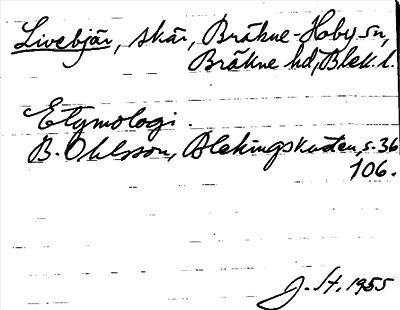 Livebjär, skär, Bräkne-Hoby sn,
Bräkne hd, Blek. l.
Etymologi.
B. Ohlsson, Blekingskusten, s. 36
106.
J. H. 1955